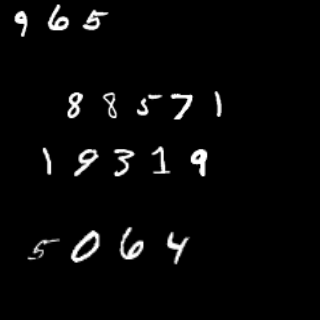 965
88571
19319
5064